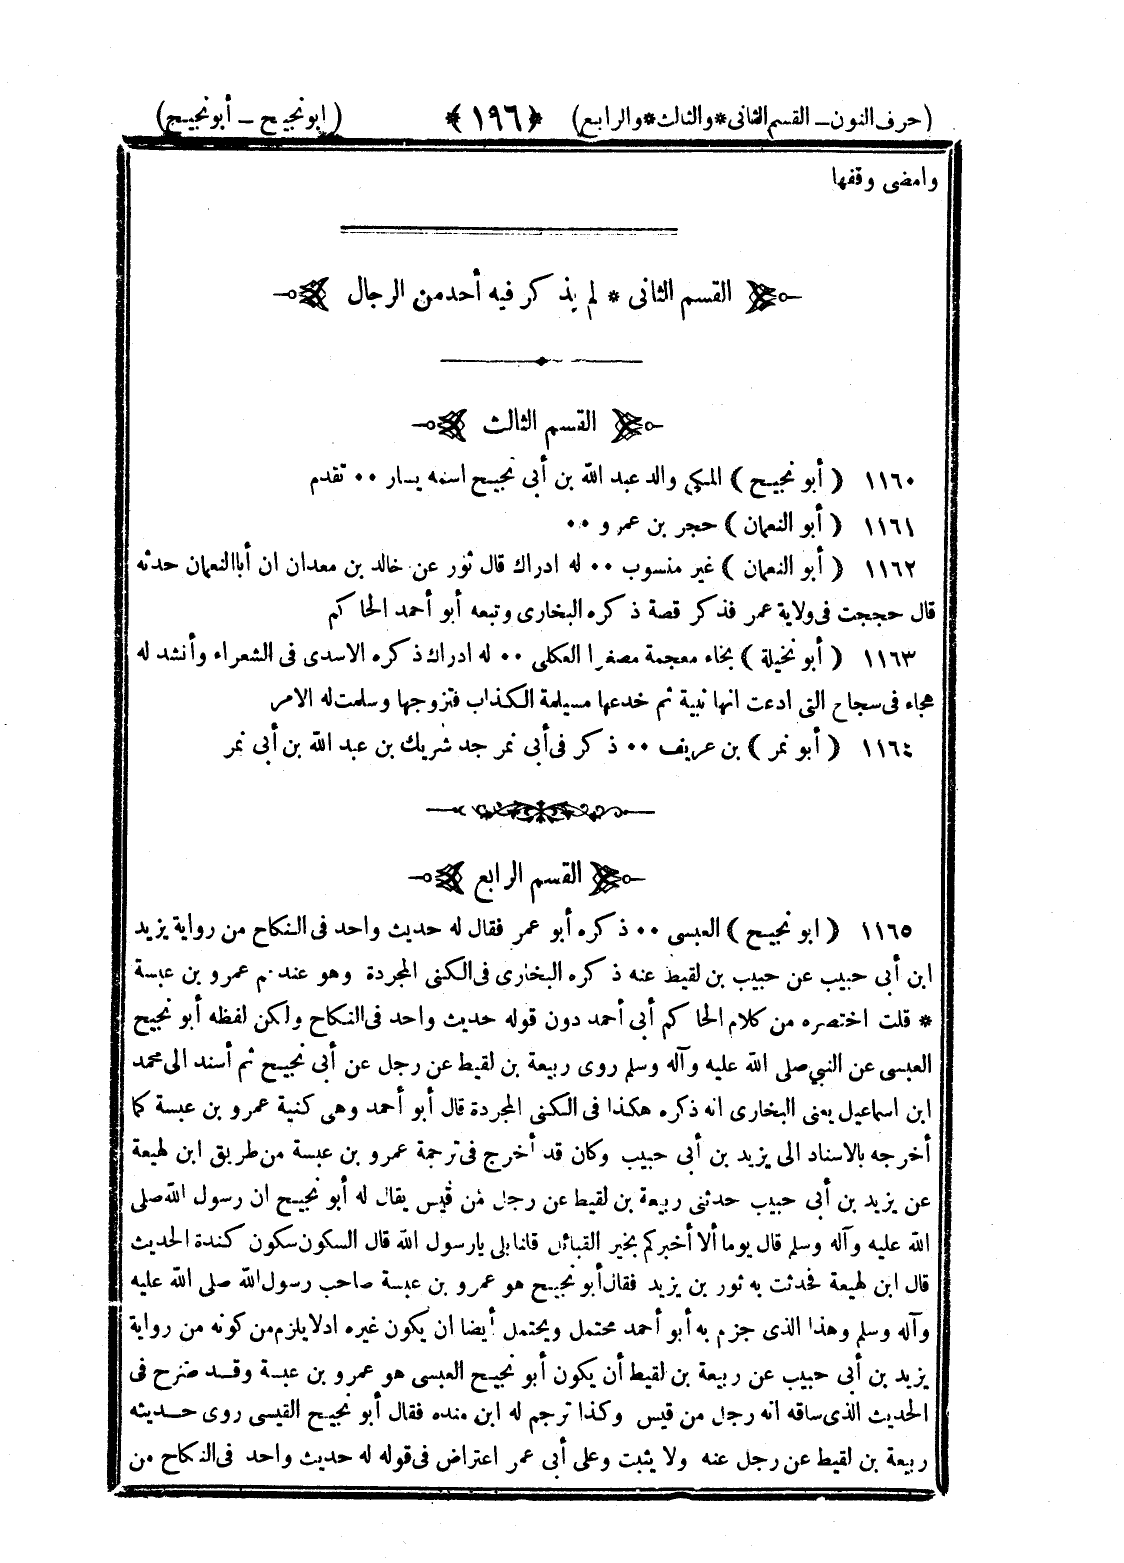 (حرف النون ــ القسم الثانى * والثالث * والرابع) ﴿١٩٦﴾ (ابو نجيح ــ أبو نجيح)
وامضى وقفها
القسم الثانى * لم يذكر فيه أحد من الرجال
القسم الثالث
١١٦٠ ( أبو نجيح ) المكي والد عبد الله بن أبي نجيح اسمه يسار ٠٠ تقدم
١١٦١ ( أبو النعمان ) حجر بن عمرو ٠٠
١١٦٢ ( أبو النعمان ) غير منسوب ٠٠ له ادراك قال ثور عن خالد بن معدان ان أبا النعمان حدثه
قال حججت فى ولاية عمر فذكر قصة ذكره البخارى وتبعه أبو أحمد الحاكم
١١٦٣ ( أبو نخيلة ) بخاء معجمة مصغرا العكلى ٠٠ له ادراك ذكره الاسدى فى الشعراء وأنشد له
هجاء فى سجاح التى ادعت انها نبية ثم خدعها مسيلمة الكذاب فتزوجها وسلمت له الامر
١١٦٤ ( أبو نمر ) بن عريف ٠٠ ذكر فى أبي نمر جد شريك بن عبد الله بن أبى نمر
القسم الرابع
١١٦٥ ( ابو نجيح ) العبسى ٠٠ ذكره أبو عمر فقال له حديث واحد فى النكاح من رواية يزيد
ابن أبى حبيب عن حبيب بن لقيط عنه ذكره البخارى فى الكنى المجردة وهو عندهم عمرو بن عبسة
* قلت اختصره من كلام الحاكم أبى أحمد دون قوله حديث واحد فى النكاح ولكن لفظه أبو نجيح
العبسى عن النبي صلى الله عليه وآله وسلم روى ربيعة بن لقيط عن رجل عن أبي نجيح ثم أسند الى محمد
ابن اسماعيل يعنى البخارى انه ذكره هكذا فى الكنى المجردة قال أبو أحمد وهى كنية عمرو بن عبسة كما
أخرجه بالاسناد الى يزيد بن أبى حبيب وكان قد أخرج فى ترجمة عمرو بن عبسة من طريق ابن لهيعة
عن يزيد بن أبى حبيب حدثنى ربيعة بن لقيط عن رجل من قيس يقال له أبو نجيح ان رسول الله صلى
الله عليه وآله وسلم قال يوما ألا أخبركم بخير القبائل قلنا بلى يا رسول الله قال السكون سكون كندة الحديث
قال ابن لهيعة فحدثت به ثور بن يزيد فقال أبو نجيح هو عمرو بن عبسة صاحب رسول الله صلى الله عليه
وآله وسلم وهذا الذى جزم به أبو أحمد محتمل ويحتمل أيضا ان يكون غيره اد لا يلزم من كونه من رواية
يزيد بن أبى حبيب عن ربيعة بن لقيط أن يكون أبو نجيح العبسى هو عمرو بن عبسة وقد صرح فى
الحديث الذى ساقه انه رجل من قيس وكذا ترجم له ابن منده فقال أبو نجيح القيسى روى حديثه
ربيعة بن لقيط عن رجل عنه ولا يثبت وعلى أبى عمر اعتراض فى قوله له حديث واحد فى النكاح من